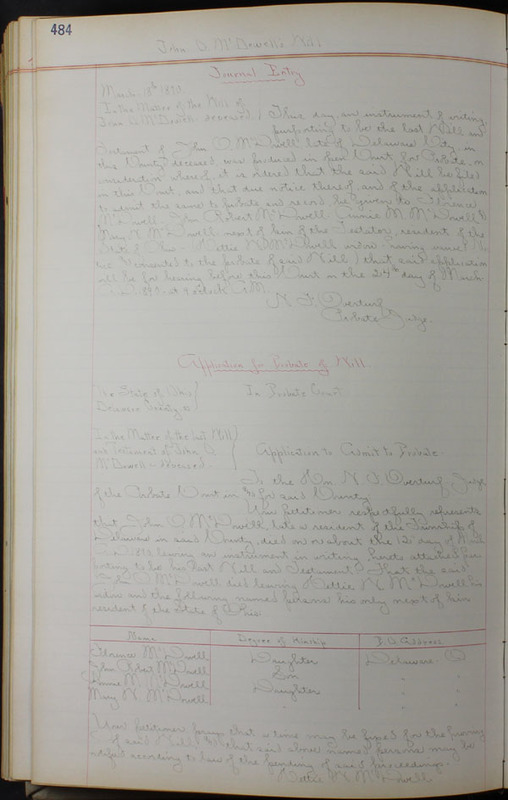 484
John O. McDowell's Will
Journal Entry
March 18th 1890.
In the Matter of the Will of
John O. McDowell deceased } This day, an instrument of writing,
purporting to be the last Will and
Testament of John O. McDowell late of Delaware City, in
this County deceased was produced in open Court, for Probate, on
consideration whereof, it is ordered that the said Will be filed
in this Court, and that due notice thereof, and of the application
to admit the same to probate and record be given to Florence
McDowell, John Robert McDowell, M. McDowell &
Mary N. McDowell next of kin of the Testator, resident of the
State of Ohio Nettie McDowell widow having
consented to the probate of said Will) that said application
will be for hearing before this Court on the 24th day of March
1890 at 9 o'clock A.M.
N. F. Overturf
Probate Judge.
Application for Probate of Will.
The State of Ohio }
Delaware County, ss }
In Probate Court
In the Matter of the last Will }
and Testament of John O. }
McDowell deceased }
Application to Admit to Probate.
To the Hon. N. F. Overturf Judge
of the Probate Court in & for said County
Your Petitioner respectfully represents
that John O. McDowell, late a resident of the Township of
Delaware in said County, died on or about the 12th day of
1890 leaving an instrument in writing, hereto attached, pur-
porting to be his last Will and Testament. That the said
John O. McDowell died leaving Nettie McDowell his
widow and the following named persons his only next of kin
resident of the State of Ohio.
Name Degree of Kinship P.O. Address
Florence McDowell Daughter Delaware, O
John Robert McDowell Son " "
M. McDowell Daughter " "
Mary N. McDowell " " "
Your petitioner prays that a time may be fixed for the proving
of said Will & that said above named persons may be
notified according to law of the pending of said proceedings.
Nettie McDowell